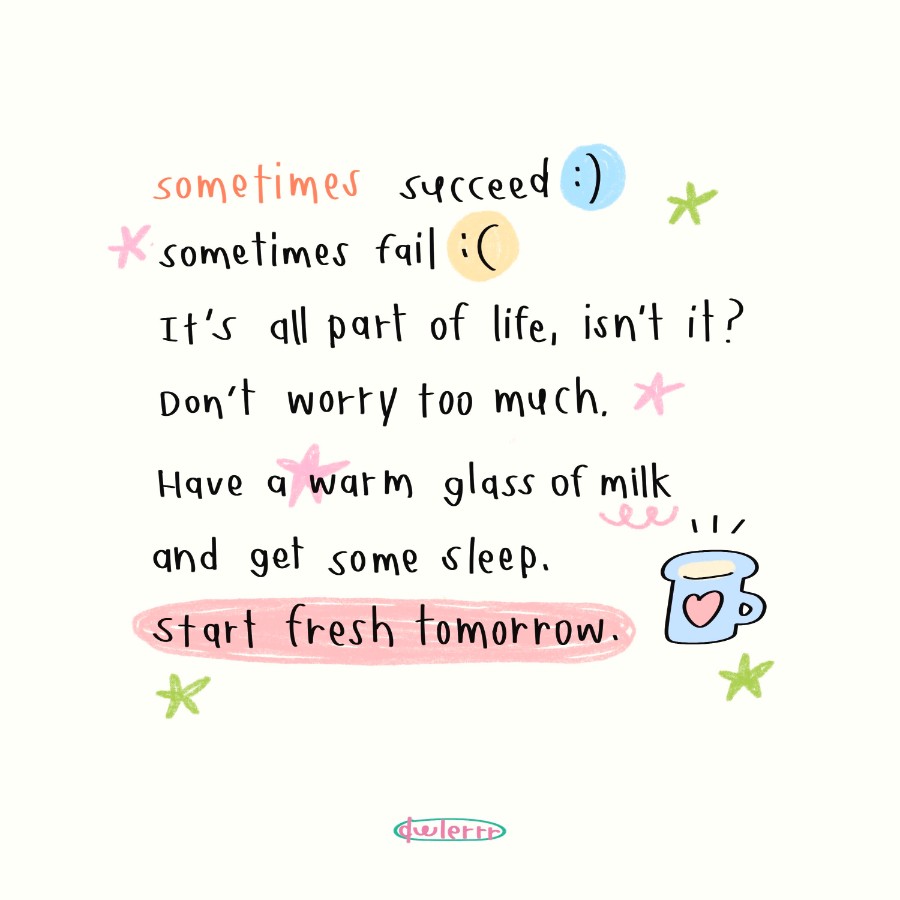 sometimes succeed :)
sometimes fail :(
It's all part of life, isn't it?
Don't worry too much.
Have a warm glass of milk
and get some sleep.
start fresh tomorrow.